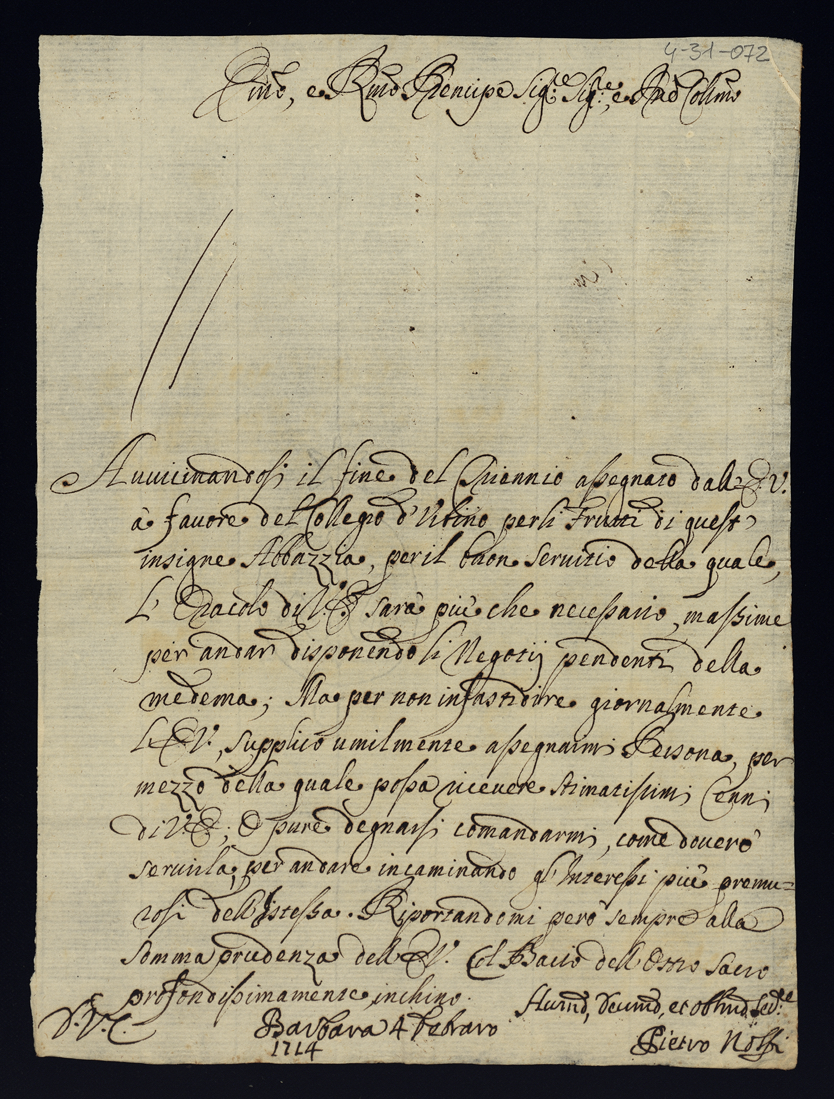 4-31-072
Emo, e Rmo Prencipe Sig:re Sig:re, e Pne Collmo
Auuicinandosi il fine del Triennio assegnato dall'E.V.
à fauore del Collegio d'Urbino per li Frutti di quest'
insigne Abbazzia, per il buon seruitio della quale,
L'Oracolo di V.E. sarà più che necessario, massime
per andar disponendo li Negotij pendenti della
medema; Ma per non infastidire giornalmente
L'E.V., supplico umilmente assegnarmi Persona, per
mezzo della quale possa riceuere stimatissimi Cenni
di V.E.; O pure degnarsi comandarmi, come douerò
seruirla, per andare incaminando gl'Interessi più premu=
rosi dell'Istessa. Riportandomi però sempre alla
somma prudenza dell'E.V. Col Bacio dell'Ostro Sacro
profondissimamente inchino.
D.V.E.
Barbara 4 Febraro
1714
Humo, Deumo, et obbmo Ser:re
Pietro Nolfi